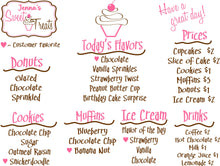 Jenna's
Sweet
Treats
♥ - Customer Favorite
Donuts
Glazed
Chocolate
Sprinkled
Today's Flavors
♥ Chocolate
Vanilla Sprinkles
Strawberry Twist
Peanut Butter Cup
Birthday Cake Surprise
Have a
great day!
Prices
Cupcakes $2
Slice of Cake $2
Cookies $1
Muffins $1
Donuts $1
Ice Cream $2
Cookies
Chocolate Chip
Sugar
Oatmeal Raisin
♥ Snickerdoodle
Muffins
Blueberry
Chocolate Chip
♥ Banana Nut
Ice Cream
Flavor of the Day
♥ Strawberry
Vanilla
Chocolate
Drinks
Coffee $1
Hot Chocolate $1